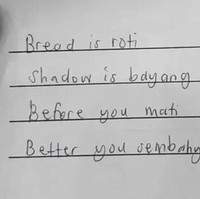 Bread is roti
Shadow is bayang
Before you mati
Better you sembahy